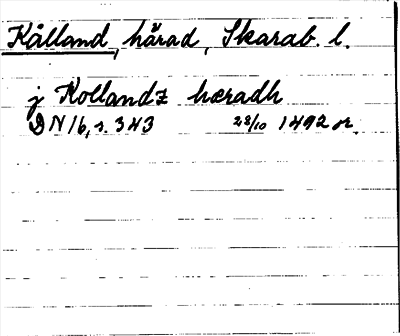 Kålland, härad, Skarab. l.
j Kollandz hæradh
DN 16, s. 343 28/10 1492 or.